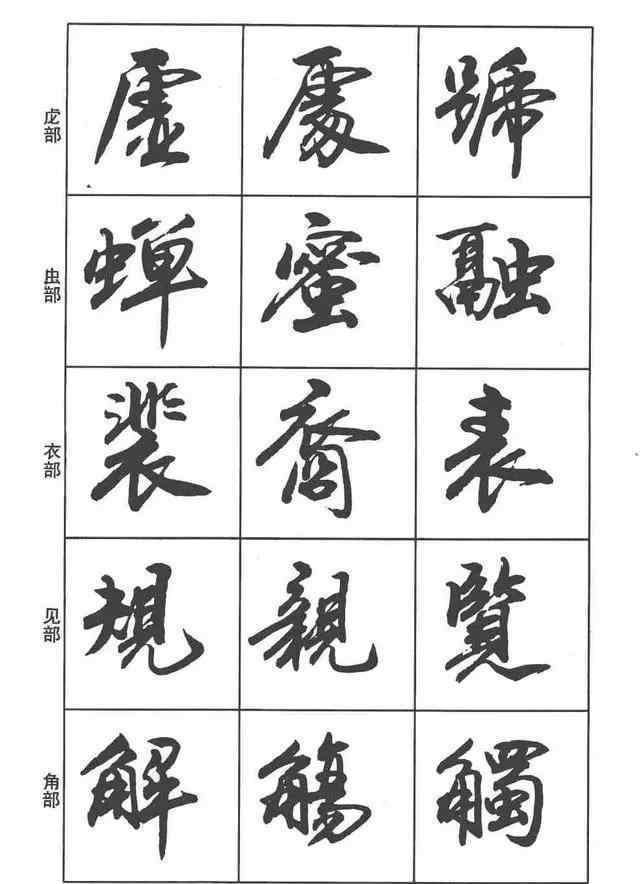 虍部 虚 處 號
虫部 蝉 蜜 融
衣部 裴 裔 表
见部 規 親 覽
角部 解 觴 觸